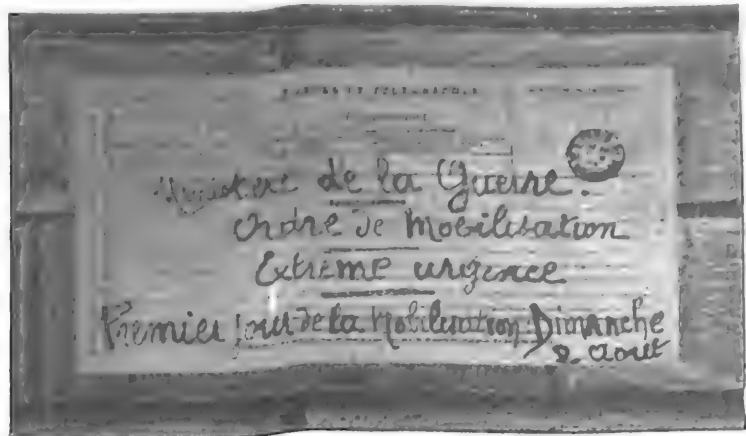 POSTES ET TÉLÉGRAPHES
Ministère de la Guerre.
Ordre de Mobilisation
Extrême urgence
Premier jour de la Mobilisation Dimanche
2. Aout